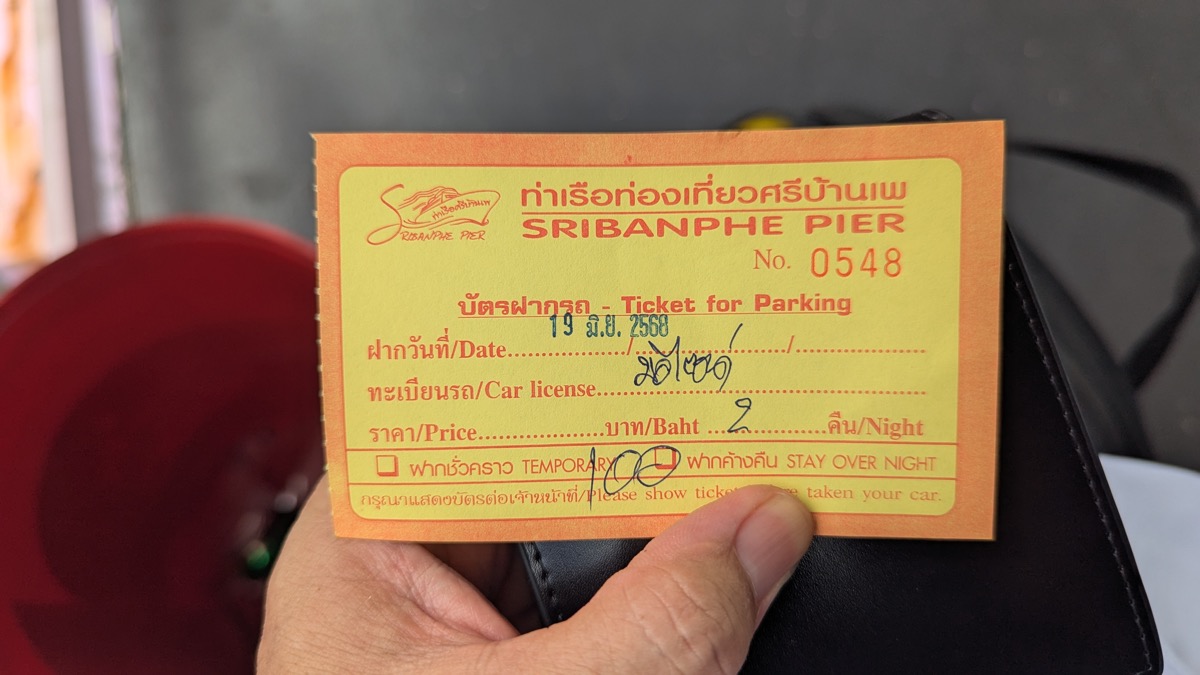 ท่าเรือศรีบ้านเพ
SRIBANPHE PIER
ท่าเรือท่องเที่ยวศรีบ้านเพ
SRIBANPHE PIER
No. 0548
บัตรฝากรถ - Ticket for Parking
19 มิ.ย. 2568
ฝากวันที่/Date................/......................../....................
ทะเบียนรถ/Car license................................................
ราคา/Price....................บาท/Baht ...2............คืน/Night
ฝากชั่วคราว TEMPORARY ฝากค้างคืน STAY OVER NIGHT
100
กรุณาแสดงบัตรต่อเจ้าหน้าที่/Please show taken your car.